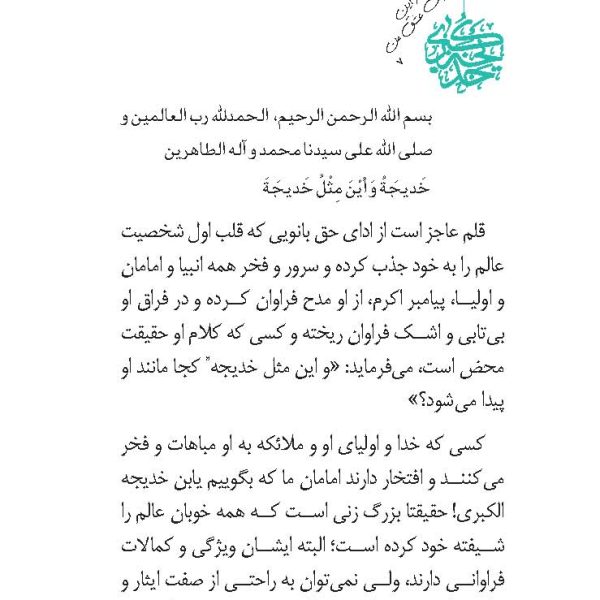 ۷
بسم الله الرحمن الرحیم، الحمدلله رب العالمین و
صلی الله علی سیدنا محمد و آله الطاهرین
خَدیجَةُ وَ اَیْنَ مِثْلُ خَدیجَةَ
قلم عاجز است از ادای حق بانویی که قلب اول شخصیت
عالم را به خود جذب کرده و سرور و فخر همه انبیا و امامان
و اولیـا، پیامبر اکرم، از او مدح فراوان کـرده و در فراق او
بی‌تابی و اشـک فراوان ریخته و کسی که کلام او حقیقت
محض است، می‌فرماید: «و این مثل خدیجه" کجا مانند او
پیدا می‌شود؟»
کسی که خدا و اولیای او و ملائکه به او مباهات و فخر
می‌کننـد و افتخار دارند امامان ما که بگوییم یابن خدیجه
الکبری! حقیقتا بزرگ زنی اسـت کـه همه خوبان عالم را
شـیفته خود کرده است؛ البته ایشان ویژگی و کمالات
فراوانـی دارند، ولی نمی‌توان به راحتـی از صفت ایثار و